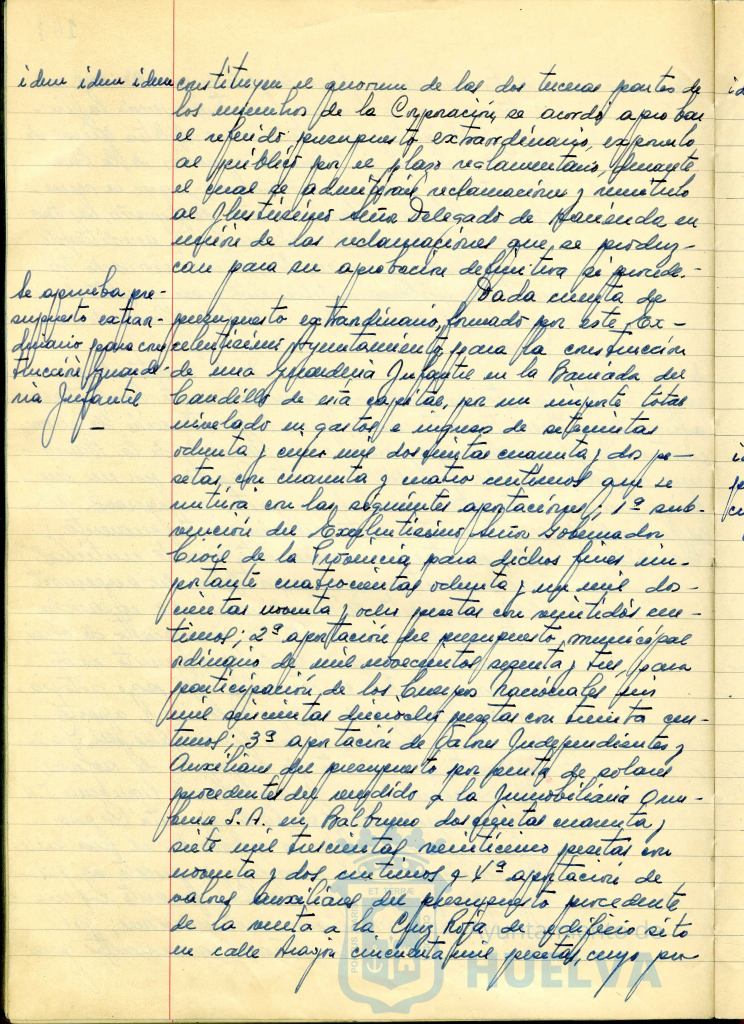 idem idem idem
constituyen el quorum de las dos terceras partes de
los miembros de la Corporación, se acordó aprobar
el referido presupuesto extraordinario, exponerlo
al público por el plazo reglamentario, durante
el cual se admitirán reclamaciones y remitirlo
al Ilustrísimo Señor Delegado de Hacienda en
unión de las reclamaciones que se produz-
can para su aprobación definitiva si procede.-
Se aprueba pre-
supuesto extraor-
dinario para cons
trucción guarde-
ría Infantil
Dada cuenta de
presupuesto extraordinario, formado por este Ex-
celentísimo Ayuntamiento, para la construcción
de una Guardería Infantil en la Barriada del
Caudillo de esta capital, por un importe total
nivelado en gastos e ingresos de setecientas
ochenta y cinco mil doscientas cuarenta y dos pe-
setas, con cuarenta y cuatro centimos que se
nutrirá con las siguientes aportaciones; 1ª sub-
vención del Excelentísimo Señor Gobernador
Civil de la Provincia para dichos fines im-
portante cuatrocientas ochenta y un mil dos-
cientas noventa y ocho pesetas con veintidós cen-
timos; 2ª aportación del presupuesto municipal
ordinario de mil novecientos sesenta y tres, para
participación de los Cuerpos Nacionales seis
mil seiscientas dieciocho pesetas con treinta cen-
timos; 3ª aportación de Valores Independientes y
Auxiliares del presupuesto por venta de solares
procedentes del vendido a la Inmobiliaria
S.A. en Balbueno doscientas cuarenta y
siete mil trescientas veinticinco pesetas con
noventa y dos centimos y 4ª aportación de
valores auxiliares del presupuesto procedente
de la venta a la Cruz Roja de edificio sito
en calle Aragón cincuenta mil pesetas, cuyo pre
Ayuntamiento de
HUELVA